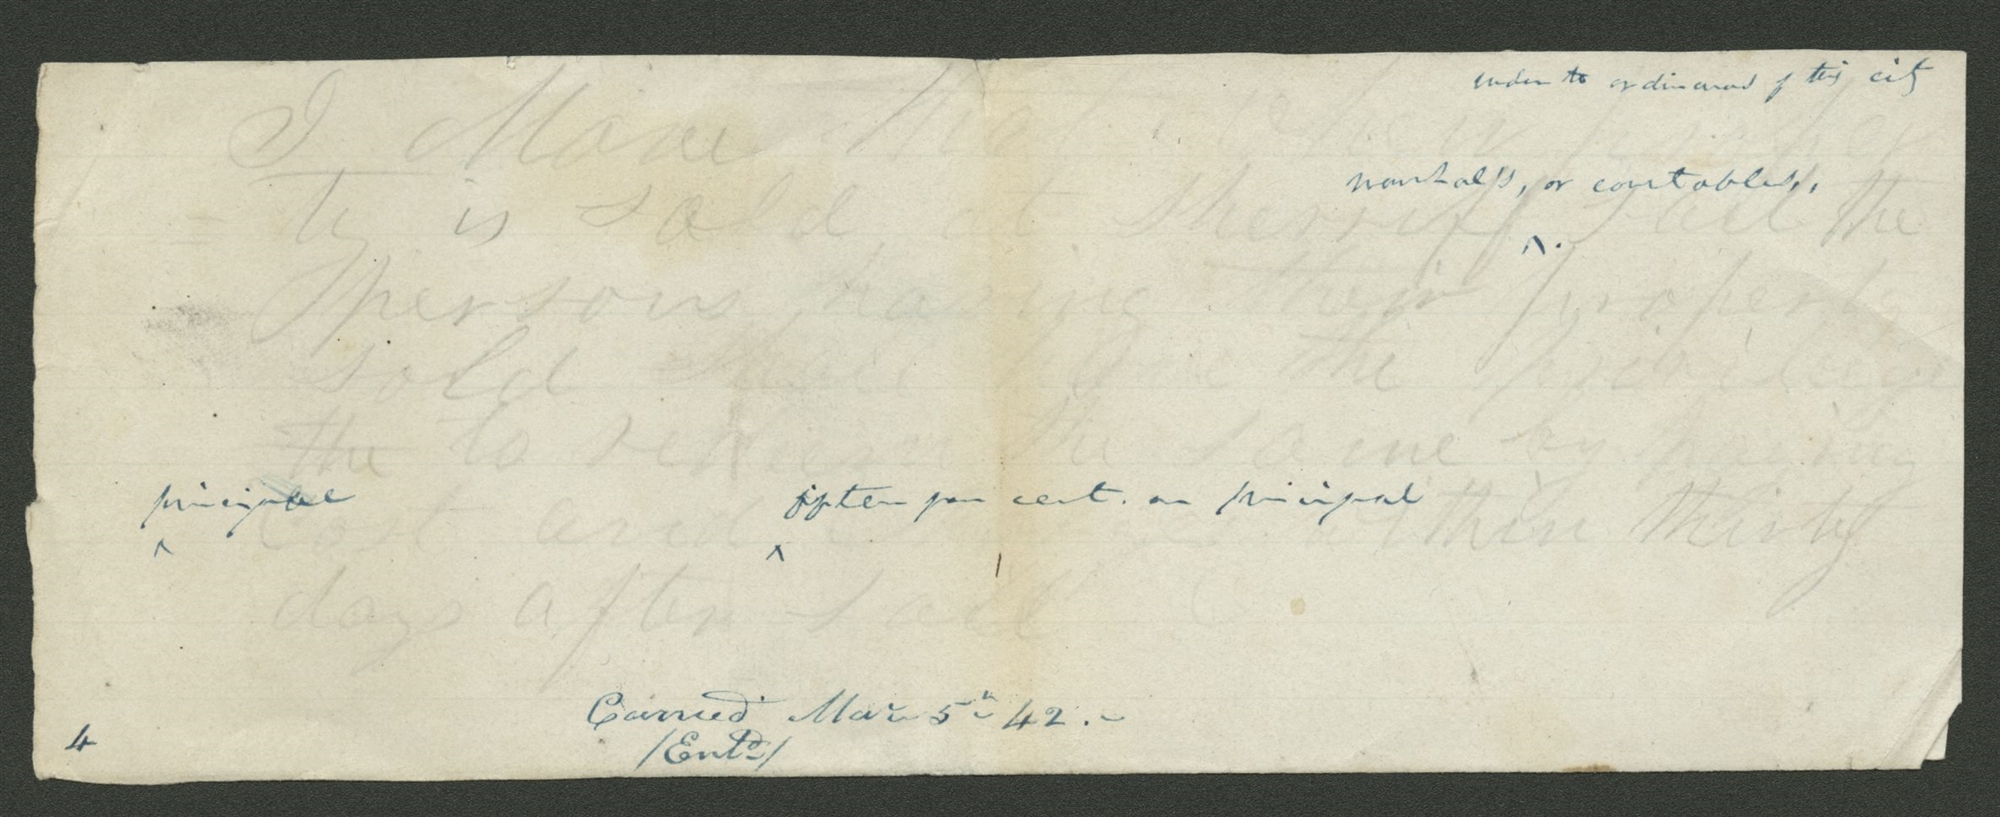 under the ordinances of this city
I Move that when proper
marshall's, or constables,
ty is sold at Sherriff Sail the
^
persons having their property
sold shall have the privilege
the to redeem the same by paying
principal fifteen per cent. on principal
cost and within thirty
^ ^
days after Sail
Carried Mar 5th 42.
4 /Entd/